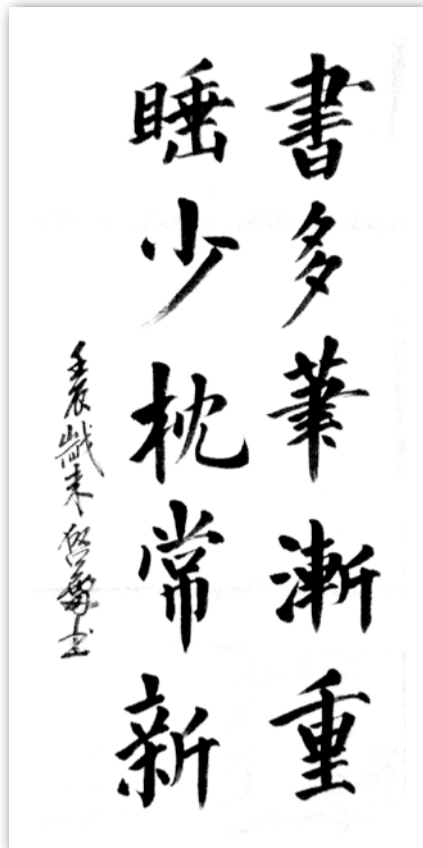 書多筆漸重
睡少枕常新
壬辰歲末 書